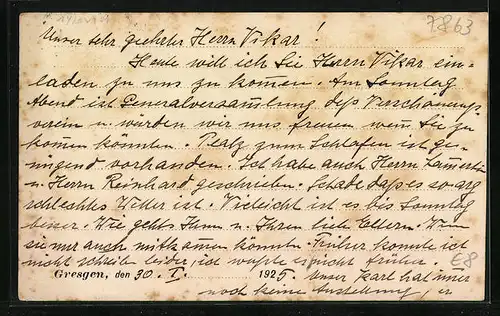 7863
Unser sehr geehrter Herrn Vikar!
Heute will ich Sie Herrn Vikar ein-
laden zu uns zu kommen. Am Sonntag
Abend ist Generalversamlung deß Verschönungs
verein u. würden wir uns freuen wenn Sie zu
komen könnten. Platz zum Schlafen ist ge-
nügend vorhanden. Ich habe auch Herrn
u. Herrn Reinhard geschrieben. Schade daß es so arg
schlechtes Wetter ist. Vieleicht ist es bis Sonntag
besser. Wie gehts Ihnen u. Ihren lieb. Eltern. Wenn
sie nur auch mitkomen könnten. Früher konnte ich
nicht schreiben leider, ich wußte es nicht früher.
€8
Gresgen, den 30. I. 1925. Unser Karl hat immer
noch keine Anstellung, er